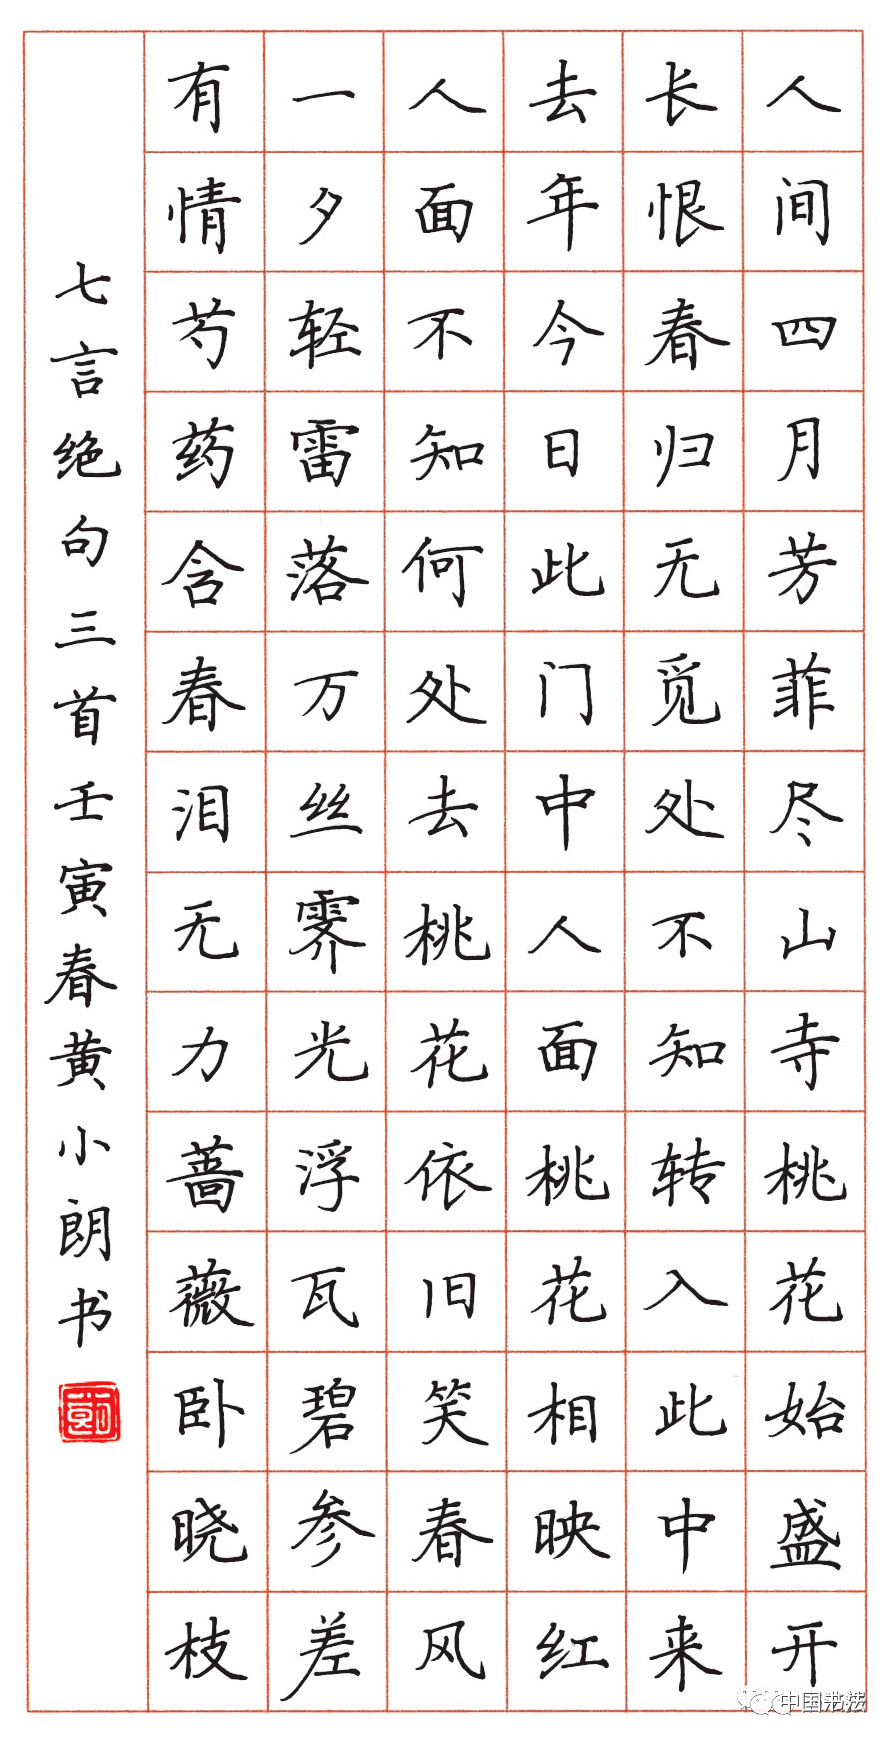 人间四月芳菲尽山寺桃花始盛开
长恨春归无觅处不知转入此中来
去年今日此门中人面桃花相映红
人面不知何处去桃花依旧笑春风
一夕轻雷落万丝霁光浮瓦碧参差
有情芍药含春泪无力蔷薇卧晓枝
七言绝句三首壬寅春黄小朗书
中国书法